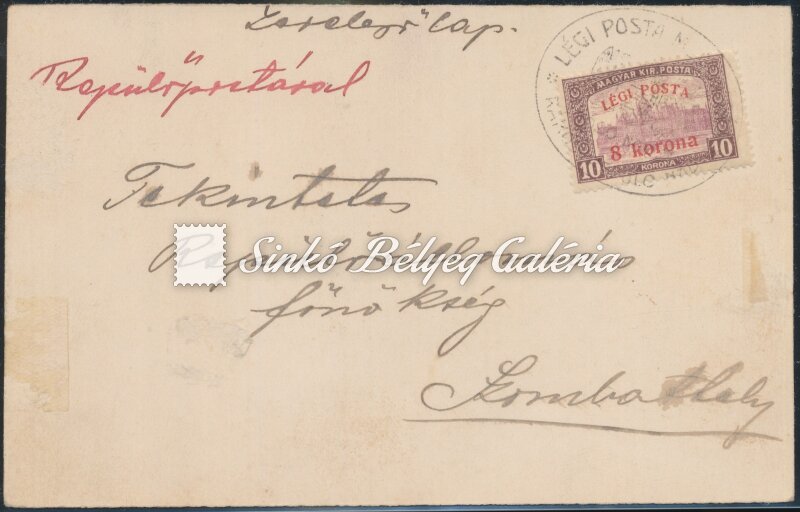 Levelező lap.
Repülőpostával
LÉGI POSTA
MAGYAR KIR. POSTA
LÉGI POSTA
8 korona
10 KORONA 10
Tekintetes
Repülőállomás
Sinkó Bélyeg Galéria
főnökség
Szombathely